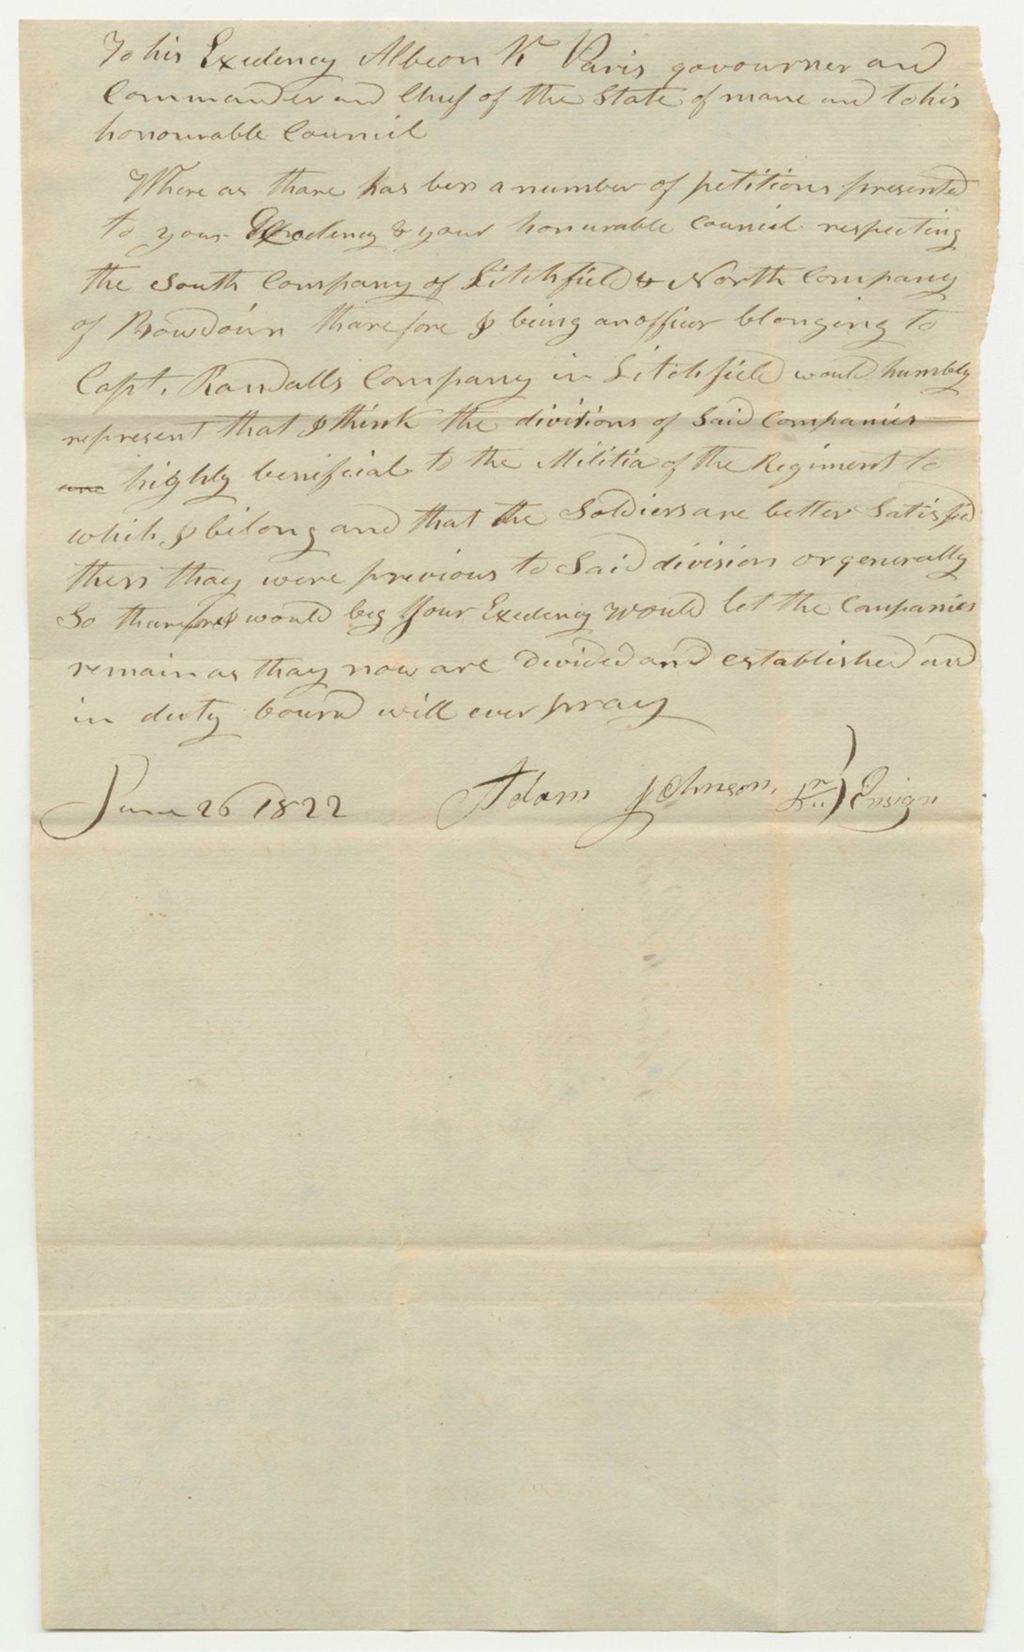 To his Exelency Albeon K Paris govourner and
Commander and Chief of the State of mane and to his
honourable Council
Where as thare has ben a number of petitions presented
to your Exelency & your honurable Council respecting
the South Company of Litchfield & North Company
of Bowdoin tharefore I being an officer blonging to
Capt. Randalls Company in Litchfield would humbly
represent that I think the divitions of Said Companies
are highly benificial to the Militia of the Regiment to
which I bilong and that the Soldiers are better Satisfied
then thay were previous to Said division or generally
So tharefore I would beg Your Exelency would let the Companies
remain as thay now are Devided and established and
in duty bound will ever pray
June 26 1822 Adam Johnson, Jr. } Ensign